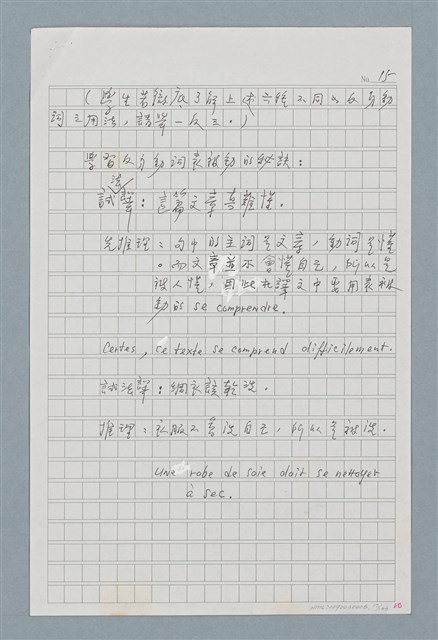 No. 15
(學生若徹底了解上述六種不同的反身動
詞之用法,請舉一反三。)
學習反身動詞表被動的秘訣:
試法譯:這篇文章真難懂。
先推理:句中的主詞是文章,動詞是懂
。而文章並不會懂自己,所以是
被人懂,因此在譯文中要用表被
動的 se comprendre.
Certes, ce texte se comprend difficilement.
試法譯:綢衣該乾洗。
推理:衣服不會洗自己,所以是被洗。
Une robe de soie doit se nettoyer
à sec.
10